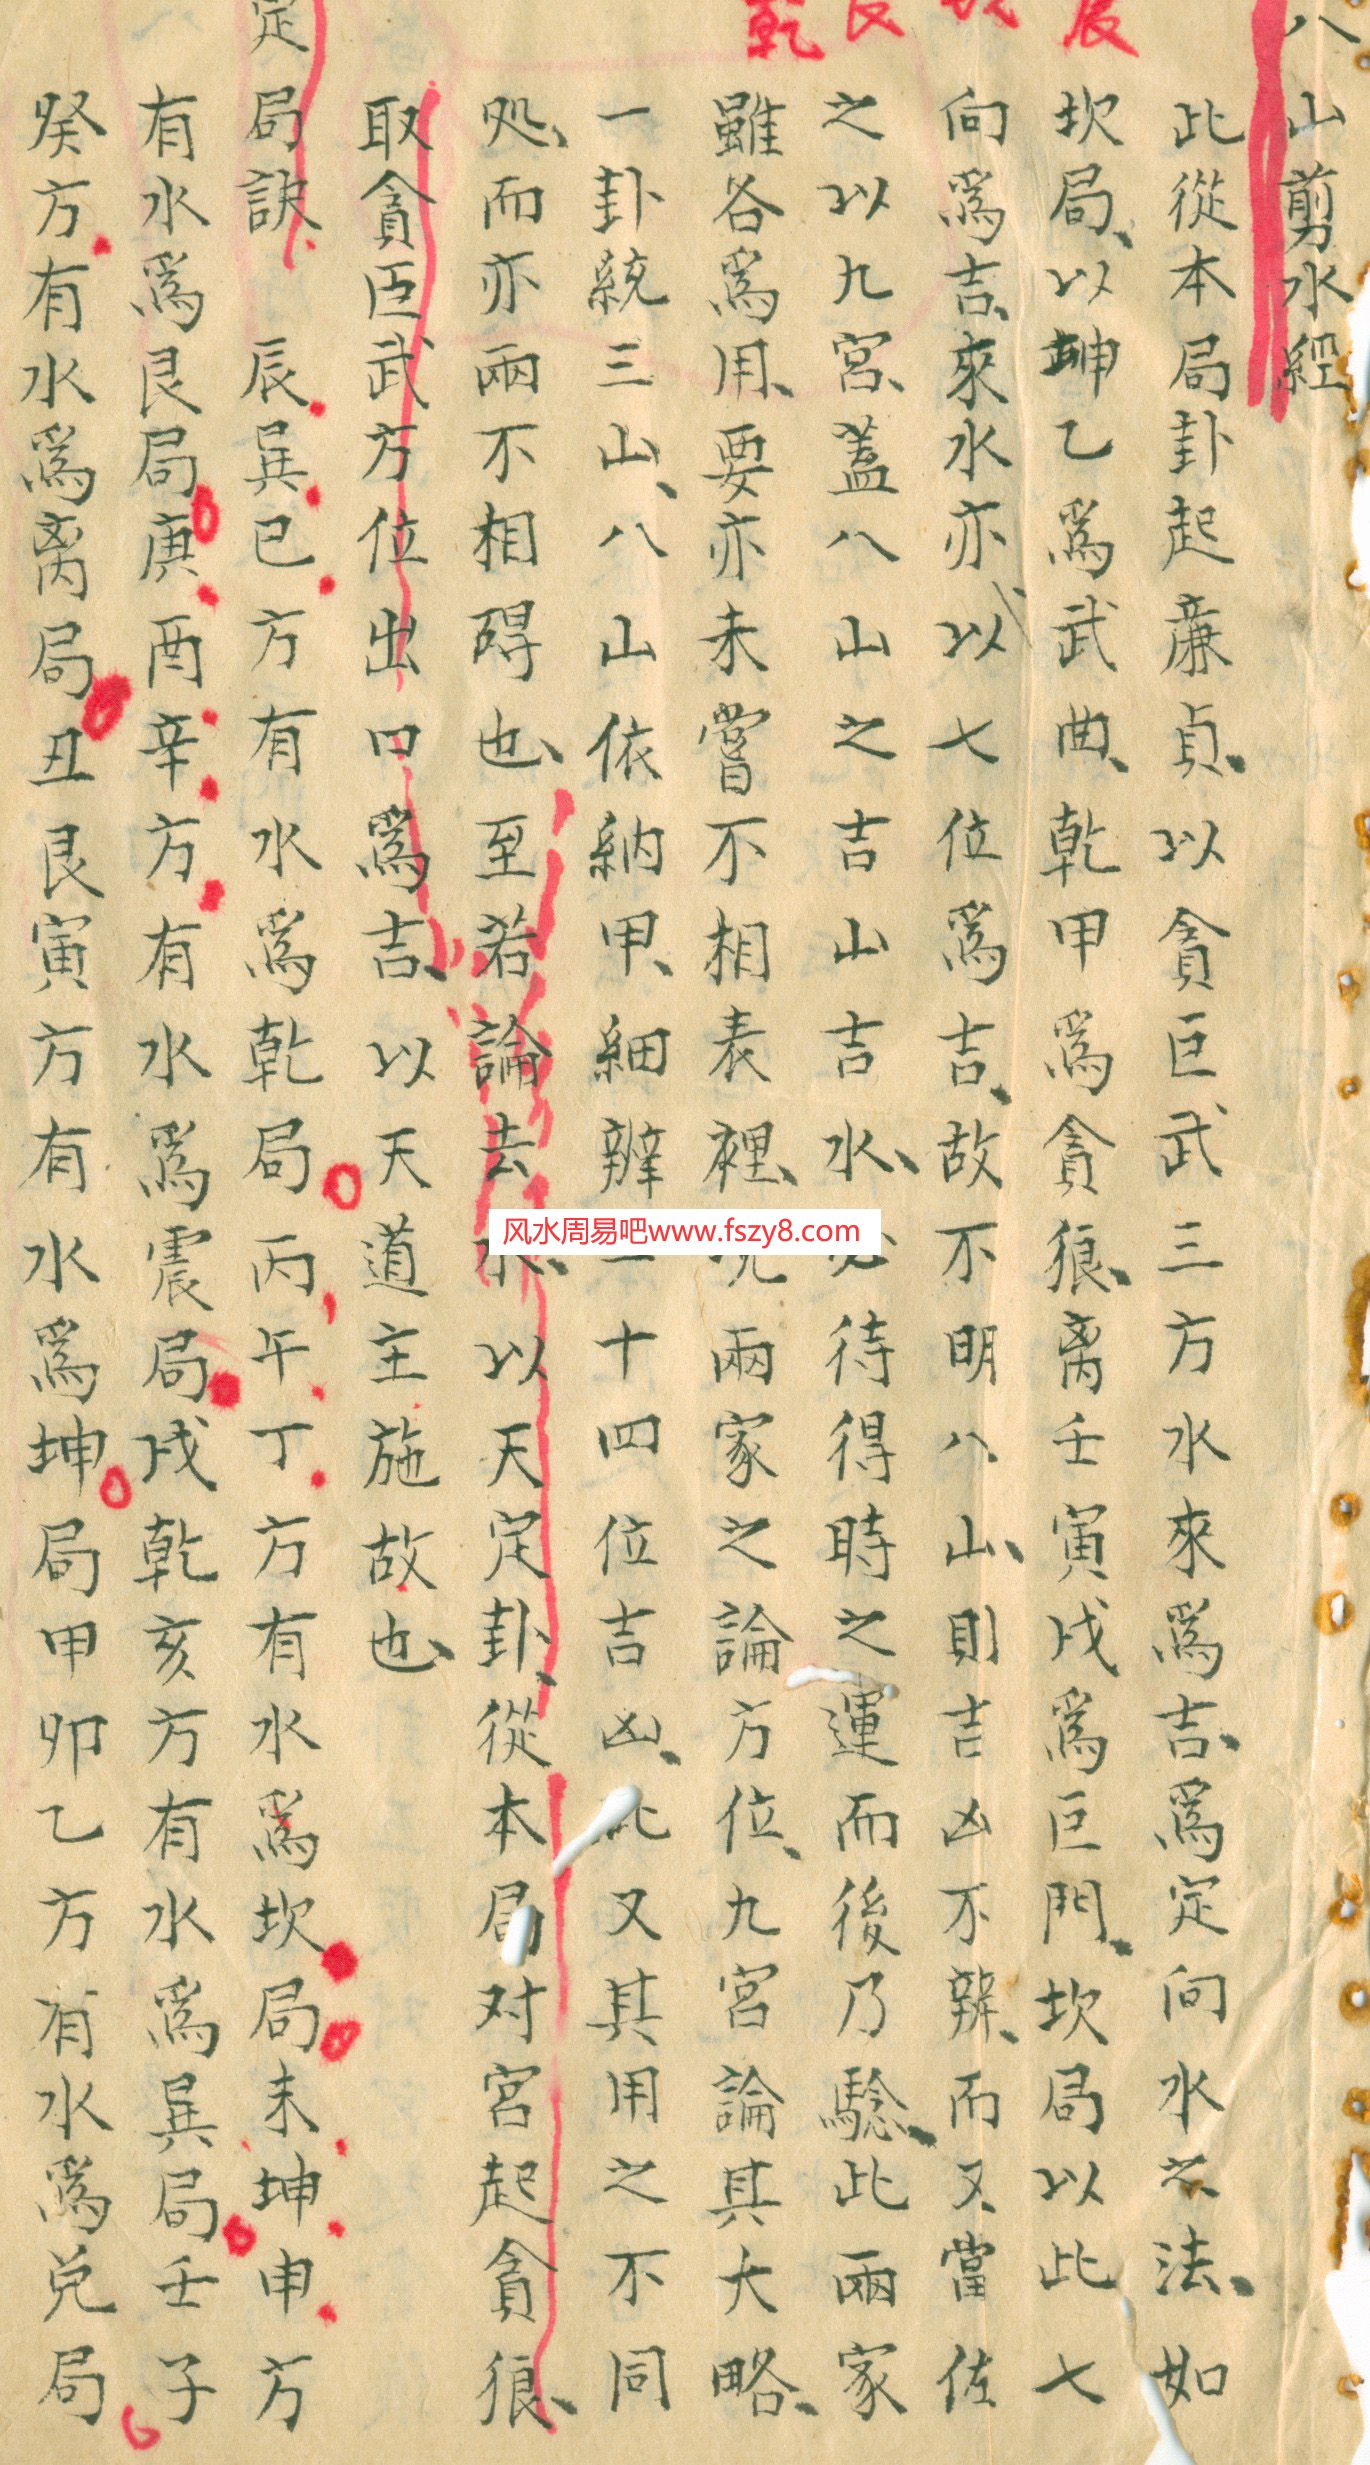 八山剪水經
此從本局卦起廉貞、以貪巨武三方水來爲吉、爲定向水之法、如
坎局、以坤乙爲武曲、乾甲爲貪狼、离壬寅戌爲巨門、坎局以此七
向爲吉、來水亦以七位爲吉、故不明八山、則吉凶不辨、而又當佐
之以九宮、蓋八山之吉山吉水、必待得時之運而後乃驗、此兩家
雖各爲用、要亦未嘗不相表裡、兩家之論方位、九宮論其大略、
一卦統三山、八山依納甲、細辨二十四位吉凶、此又其用之不同
処、而亦兩不相碍也、至若論去水、以天定卦、從本局对宮起貪狼、
取貪巨武方位出口爲吉、以天道主施故也、
定局訣 辰巽巳方有水爲乾局丙午丁方有水爲坎局未坤申方
有水爲艮局庚酉辛方有水爲震局戌乾亥方有水爲巽局壬子
癸方有水爲离局丑艮寅方有水爲坤局甲卯乙方有水爲兑局
辰
坎
艮
乾
风水周易吧www.fszy8.com